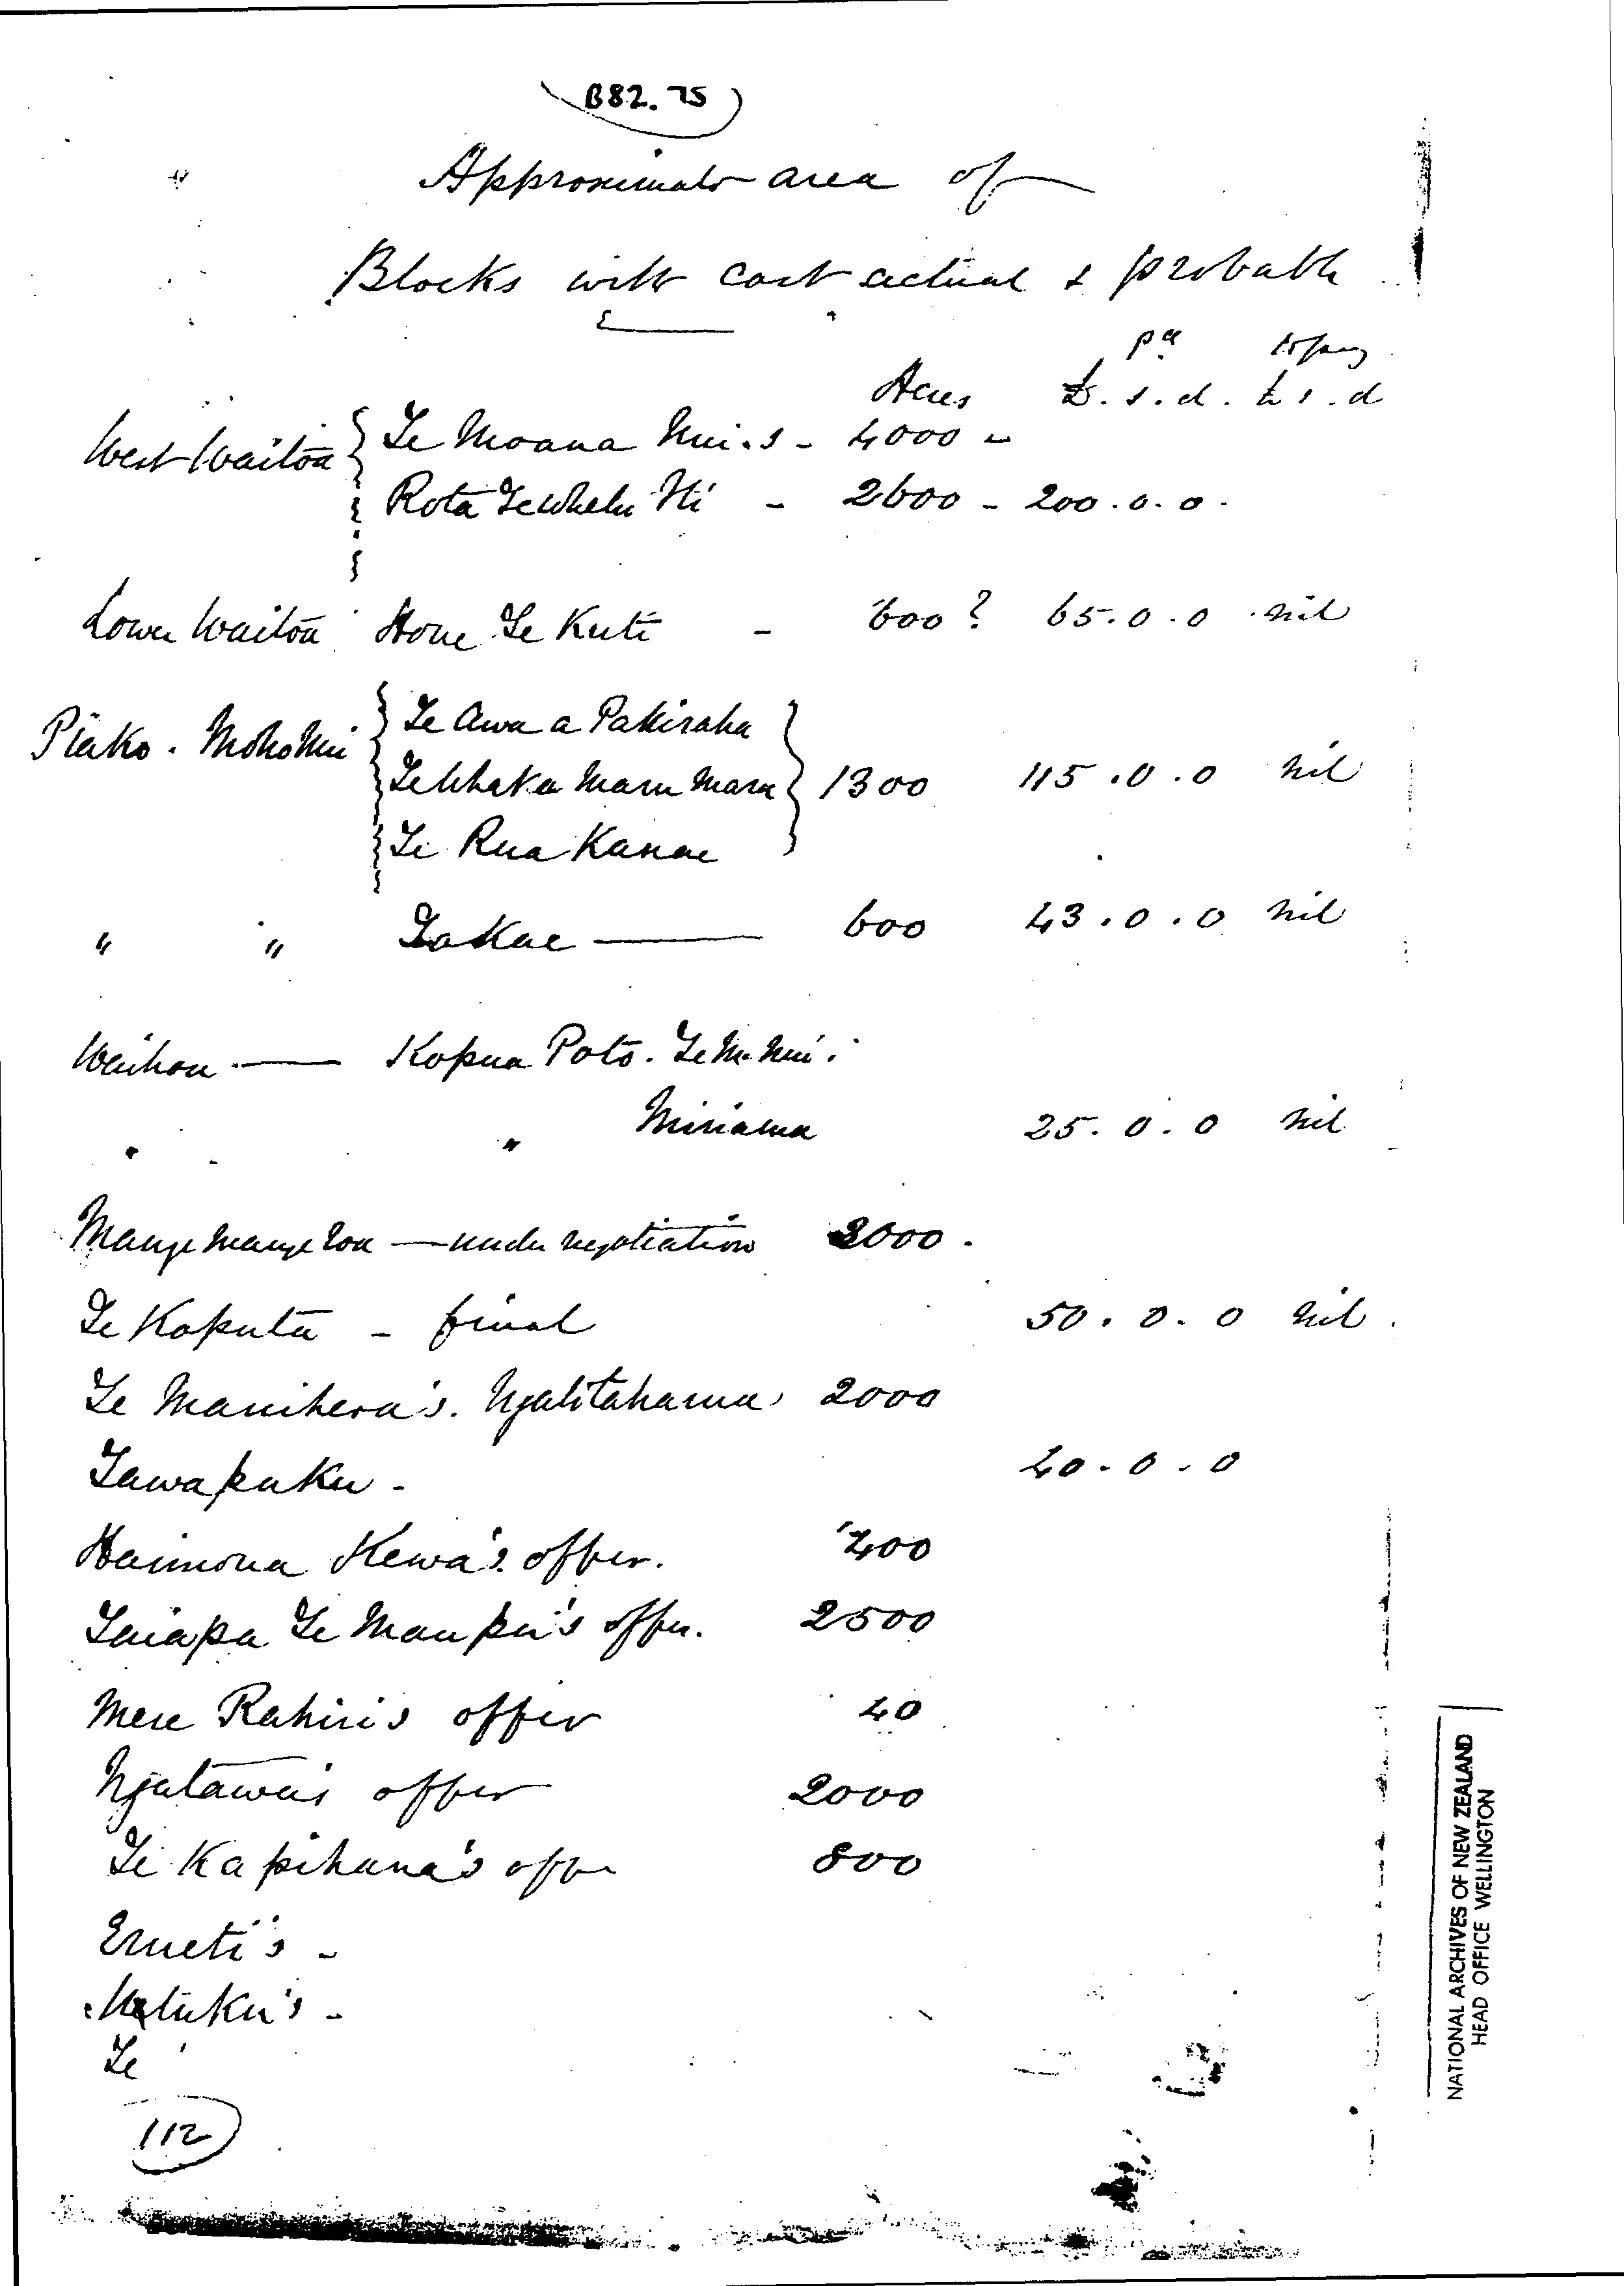 B82.75
Approximate area of
Blocks with cost actual & probable
pd to pay
Acres £. s. d. £ s. d
West Waitoa { Te Moana Nui's - 4000 -
Rota Te Whehe Hi - 2600 - 200. 0. 0.
Lower Waitoa Hone Te Kuti - 600? 65. 0. 0 nil
Piako. MohoNui { Te Awa a Pakiraha
Te Whaka Maru Mara } 1300 115. 0. 0 nil
Te Rua Kanae
" " Takae — 600 43. 0. 0 nil
Waihou — Kopua Poto. Te M. Nui.
" " Miriama 25. 0. 0 nil
Mange mange roa — under negotiation 2000.
Te Koputu - final 50. 0. 0 nil.
Te Manihera's. Ngatitaharua 2000
Tawapuku - 40. 0. 0
Haimona Hewa's offer. 400
Taiapa Te Maupu's offer. 2500
Mere Rahiri's offer 40
Ngatawa's offer 2000
Te Kapihana's offer 800
Erueti's -
Matuku's -
Te
112
NATIONAL ARCHIVES OF NEW ZEALAND
HEAD OFFICE WELLINGTON